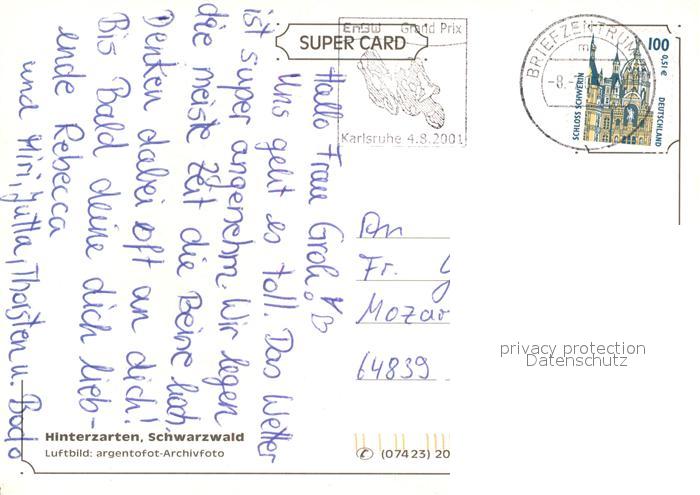 EnBW Grand Prix
SUPER CARD
Karlsruhe 4.8.2001
BRIEFZENTRUM
100
0,51 €
SCHLOSS SCHWERIN
DEUTSCHLAND
Hallo Frau Groh!
Uns geht es toll. Das Wetter
ist super angenehm. Wir legen
die meiste Zeit die Beine hoch.
Denken dabei oft an dich!
Bis Bald deine dich lieb-
ende Rebecca
und Miri, Jutta, Thorsten u. Bodo
An
Fr.
Mozar
64839
privacy protection
Datenschutz
Hinterzarten, Schwarzwald
Luftbild: argentofot-Archivfoto
(07423) 20